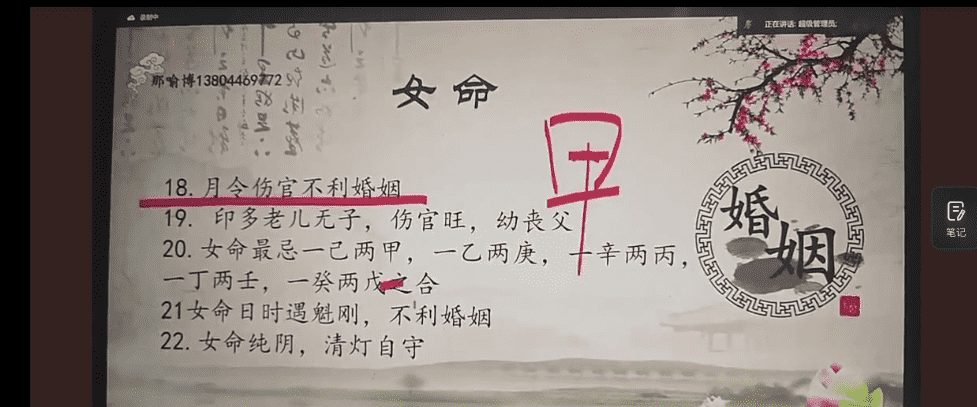 录制中
正在讲话: 超级管理员;
那喻博13804469772
女命
甲
18.月令伤官不利婚姻
19. 印多老儿无子，伤官旺，幼丧父
20.女命最忌一己两甲，一乙两庚，一辛两丙，
一丁两壬，一癸两戊之合
21女命日时遇魁刚，不利婚姻
22.女命纯阴，清灯自守
婚姻
笔记